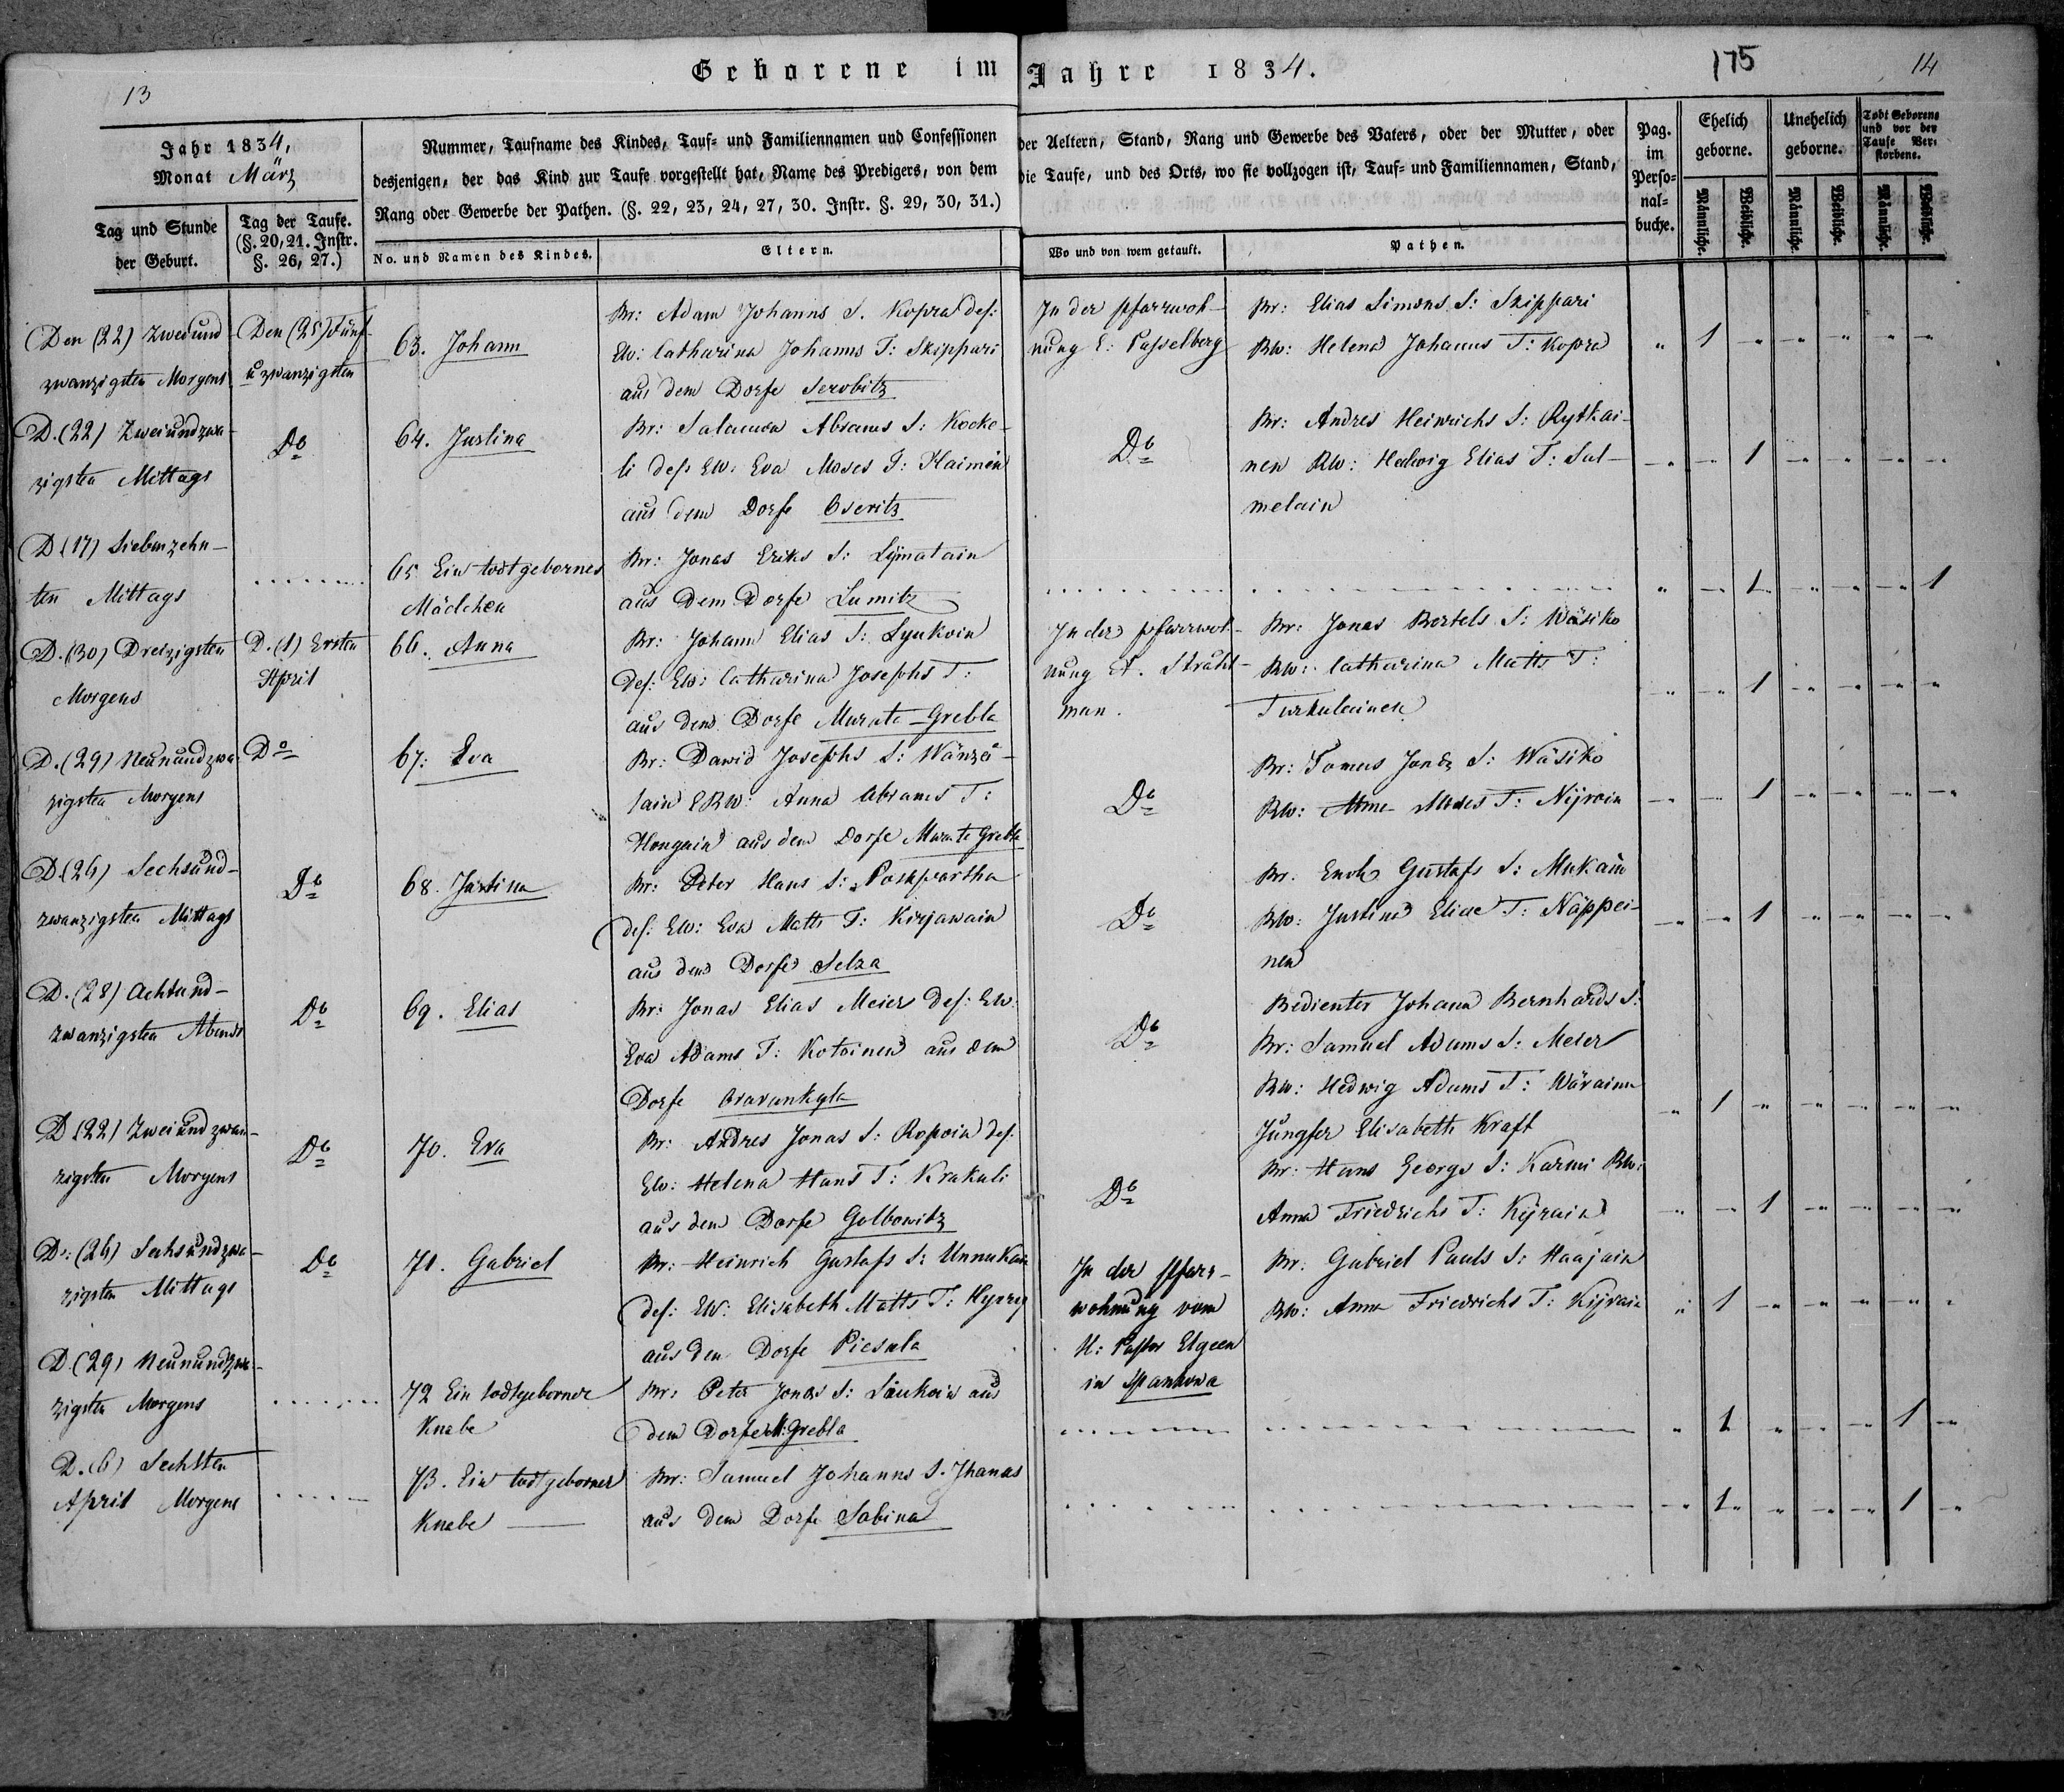 Geborene im Jahre 1834.
13
175
14
Jahr 1834,
Monat März
Nummer, Taufname des Kindes, Tauf- und Familiennamen und Confessionen der Aeltern, Stand, Rang und Gewerbe des Vaters, oder der Mutter, oder
desjenigen, der das Kind zur Taufe vorgestellt hat, Name des Predigers, von dem die Taufe, und des Orts, wo sie vollzogen ist, Tauf- und Familiennamen, Stand,
Rang oder Gewerbe der Pathen. (§. 22, 23, 24, 27, 30. Instr. §. 29, 30, 31.)
Pag.
im
Perso-
nal-
buche.
Ehelich
geborne.
Unehelich
geborne.
Todt Geborene
und vor der
Taufe Ver-
storbene.
Tag und Stunde
der Geburt.
Tag der Taufe.
(§. 20, 21. Instr.
§. 26, 27.)
No. und Namen des Kindes.
Eltern.
Wo und von wem getauft.
Pathen.
Männliche.
Weibliche.
Männliche.
Weibliche.
Männliche.
Weibliche.
Den (22) Zweiund
zwanzigsten Morgens
Den (25) Fünf
u zwanzigsten
63. Johann
Br: Adam Johanns S. Kopra des:
EW: Catharina Johanns T: Skippari
aus dem Dorfe Serobitz
In der Pfarrwoh-
nung E: Passelberg
Br: Elias Simons S: Skippari
BW: Helena Johanns T: Kopra
1
D. (22) Zweiundzwa-
zigsten Mittags
Do
64. Justina
Br: Salomon Abrams S: Kocko-
li des EW: Eva Moses T: Haimen
aus dem Dorfe Oseritz
Do
Br: Andres Heinrichs S: Rytkai-
nen BW: Hedwig Elias T: Sul-
melain
1
D (17) Siebenzehn-
ten Mittags
65 Ein todtgebornes
Mädchen
Br: Jonas Eriks S: Lÿmatain
aus dem Dorfe Lumitz
1
1
D. (30) Dreizigsten
Morgens
D. (1) Ersten
April
66. Anna
Br: Johann Elias S: Lyukoin
des: EW: Catharina Josephs T:
aus dem Dorfe Murata-Grebla
In der Pfarrwoh-
nung A. Stråhl-
man.
Br: Jonas Bertels S: Wäsiko
BW: Catharina Matts T:
Turkulainen
1
D. (29) Neunundzwa
zigsten Morgens
Do
67: Eva
Br: Dawid Josephs S: Wänzä-
lain EBW: Anna Abrams T:
Hongain aus dem Dorfe Murate Grebla
Do
Br: Tomas Jonas S: Wäsiko
BW: Anna Moses T: Nijroin
1
D (26) Sechsund-
zwanzigsten Mittags
Do
68. Justina
Br: Peter Hans S: Poskpartha
des: EW: Eva Matts T: Kirjawain
aus dem Dorfe Selza
Do
Br. Enoh Gustafs S: Mukain
BW: Justina Elias T: Näppei-
nen
1
D. (28) Achtund-
zwanzigsten Abends
Do
69. Elias
Br: Jonas Elias Meier des: EW:
Eva Adams T: Kotoinen aus dem
Dorfe Orarankyla
Do
Bedienter Johann Bernhards S:
Br: Samuel Adams S: Meier
BW: Hedwig Adams T: Wäräinn
Jungfer Elisabeth Kraft
1
D (22) Zweiundzwan-
zigsten Morgens
Do
70. Eva
Br: Andres Jonas S: Ropoin des.
EW: Helena Hans T: Krakuli
aus dem Dorfe Golbowitz
Do
Br: Hans Georgs S: Karmi BW:
Anna Friedrichs T: Kijrain
1
D: (26) Sechsundzwa-
zigsten Mittags
Do
71. Gabriel
Br: Heinrich Gustafs S: Unnukain
des: EW: Elisabeth Matts T: Hyvry
aus dem Dorfe Piesula
In der Pfarr-
wohnung vom
H: Pastor Elgeen
in Spankowa
Br: Gabriel Pauls S: Haajain
BW: Anna Friedrichs T: Kijrain
1
D. (29) Neunundzwa-
zigsten Morgens
72 Ein todtgeborner
Knabe
Br: Peter Jonas S: Saukoin aus
dem Dorfe M: Grebla
1
1
D. (6) Sechsten
April Morgens
73. Ein todtgeborner
Knabe
Br: Samuel Johanns S. Ihanas
aus dem Dorfe Sabina
1
1